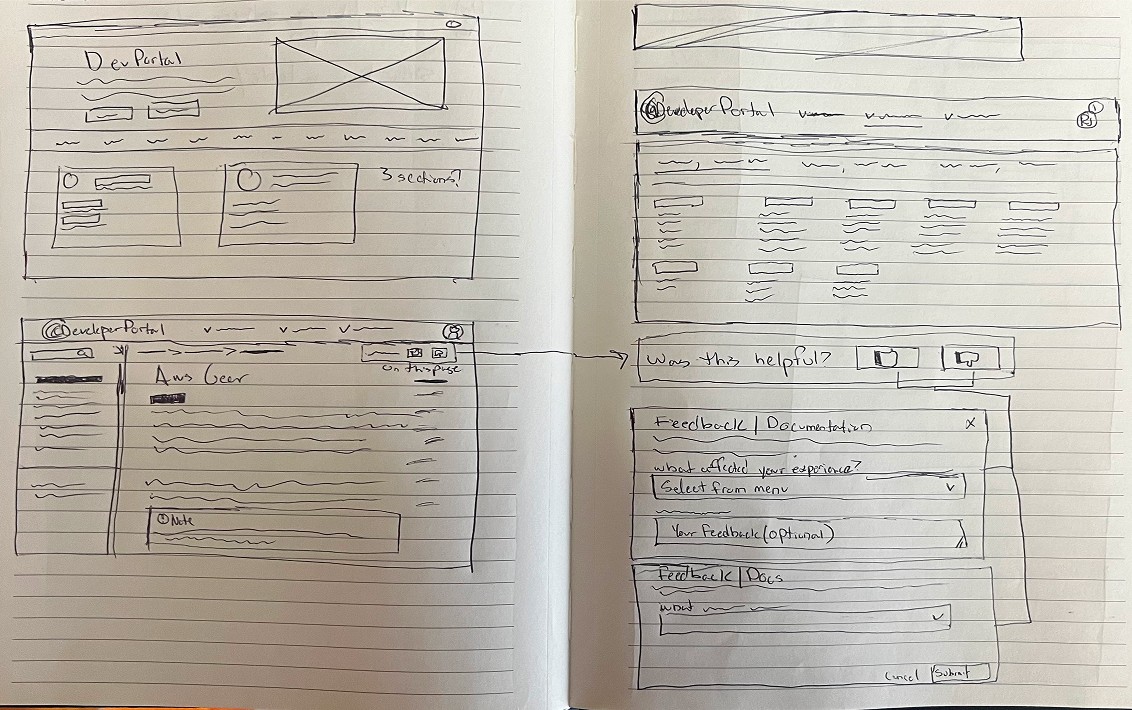 DevPortal
3 sections?
DeveloperPortal
on this page
Note
DeveloperPortal
Was this helpful?
Feedback | Documentation
X
what affected your experience?
Select from menu
Your Feedback (optional)
Feedback | Docs
what
Cancel Submit